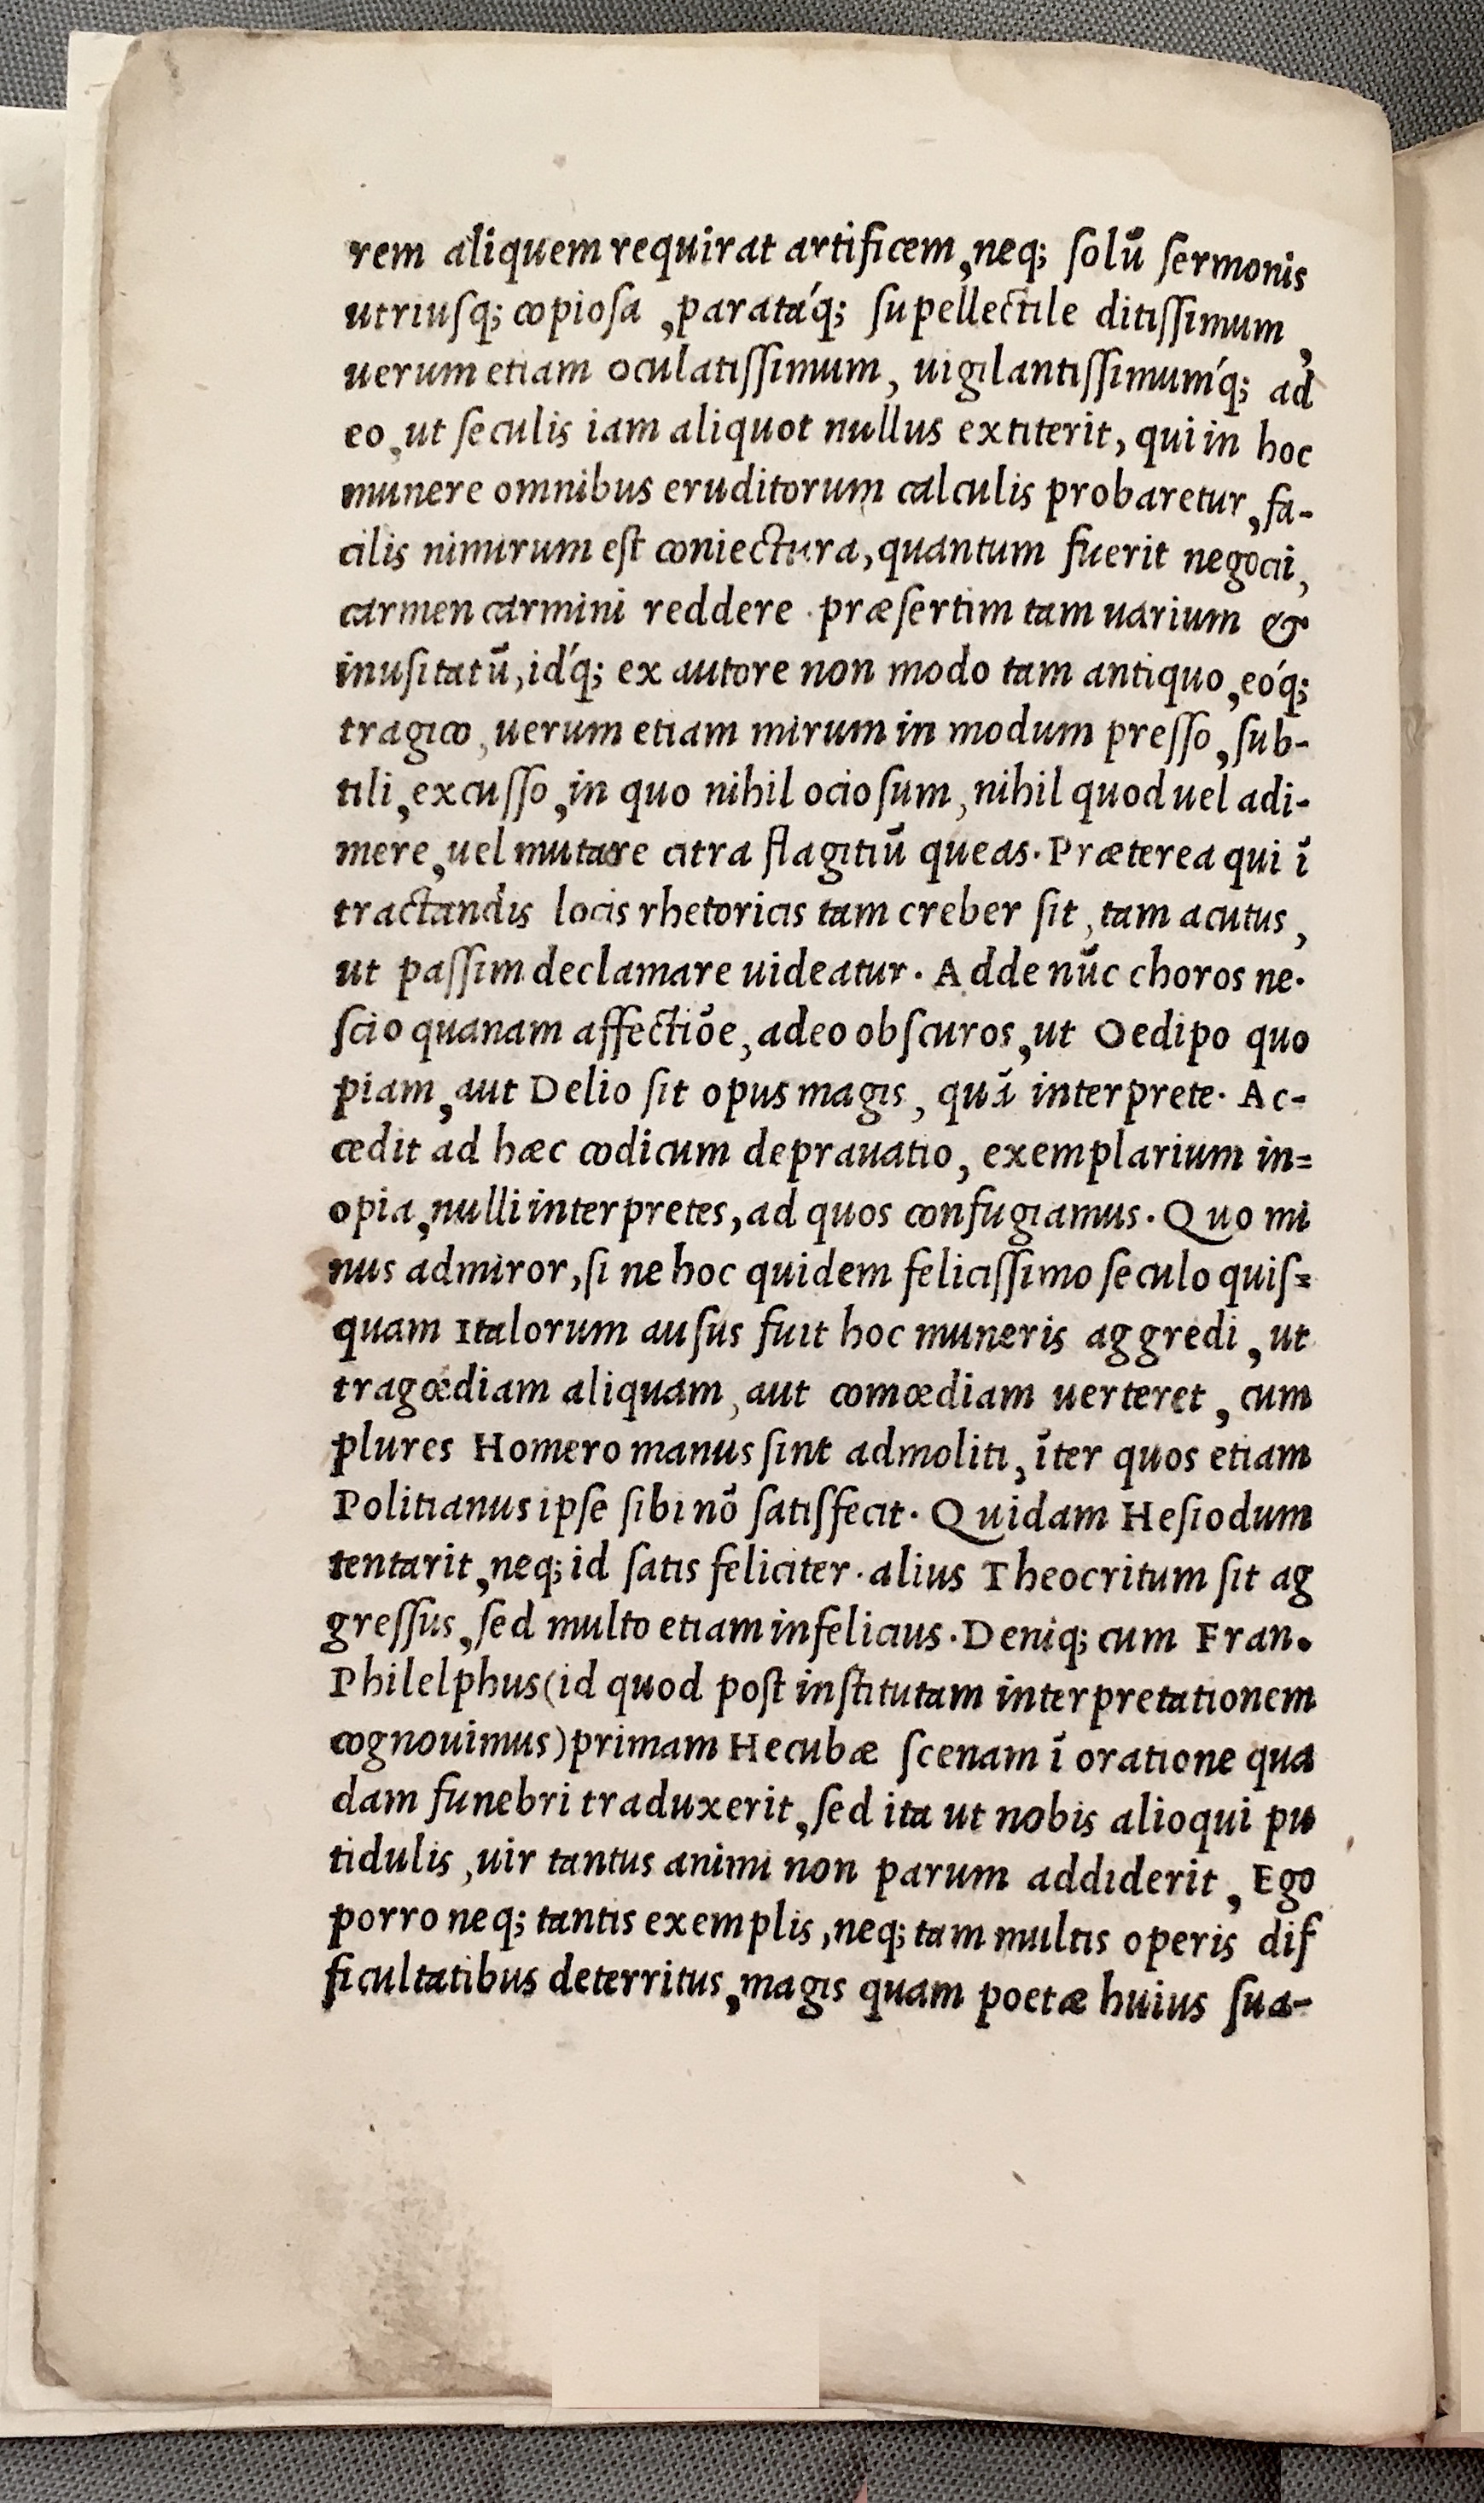 rem aliquem requirat artificem, neq; ſolū ſermonis
utriuſq; copioſa, paratáq; ſupellectile ditiſſimum,
uerum etiam oculatiſſimum, uigilantiſſimumq́; ad
eo, ut ſeculis iam aliquot nullus extiterit, qui in hoc
munere omnibus eruditorum calculis probaretur, fa-
cilis nimirum eſt coniectura, quantum fuerit negocii,
carmen carmini reddere . præſertim tam uarium &
inuſitatū, idq́; ex autore non modo tam antiquo, eóq;
tragico, uerum etiam mirum in modum preſſo, ſub-
tili, excuſſo, in quo nihil ocioſum, nihil quod uel adi-
mere, uel mutare citra flagitiū queas. Præterea qui ī
tractandis locis rhetoricis tam creber ſit, tam acutus,
ut paſſim declamare uideatur. Adde nūc choros ne-
ſcio quanam affectiōe, adeo obſcuros, ut Oedipo quo
piam, aut Delio ſit opus magis, quā interprete. Ac-
cedit ad hæc codicum deprauatio, exemplarium in=
opia, nulli interpretes, ad quos confugiamus. Quo mi
nus admiror, ſi ne hoc quidem feliciſſimo ſeculo quiſ=
quam Italorum auſus fuit hoc muneris aggredi, ut
tragœdiam aliquam, aut comœdiam uerteret, cum
plures Homero manus ſint admoliti, īter quos etiam
Politianus ipſe ſibi nō ſatiſfecit. Quidam Heſiodum
tentarit, neq; id ſatis feliciter. alius Theocritum ſit ag
greſſus, ſed multo etiam infelicius. Deniq; cum Fran.
Philelphus(id quod poſt inſtitutam interpretationem
cognouimus)primam Hecubæ ſcenam ī oratione qua
dam funebri traduxerit, ſed ita ut nobis alioqui pu
tidulis, uir tantus animi non parum addiderit, Ego
porro neq; tantis exemplis, neq; tam multis operis dif
ficultatibus deterritus, magis quam poetæ huius ſua-